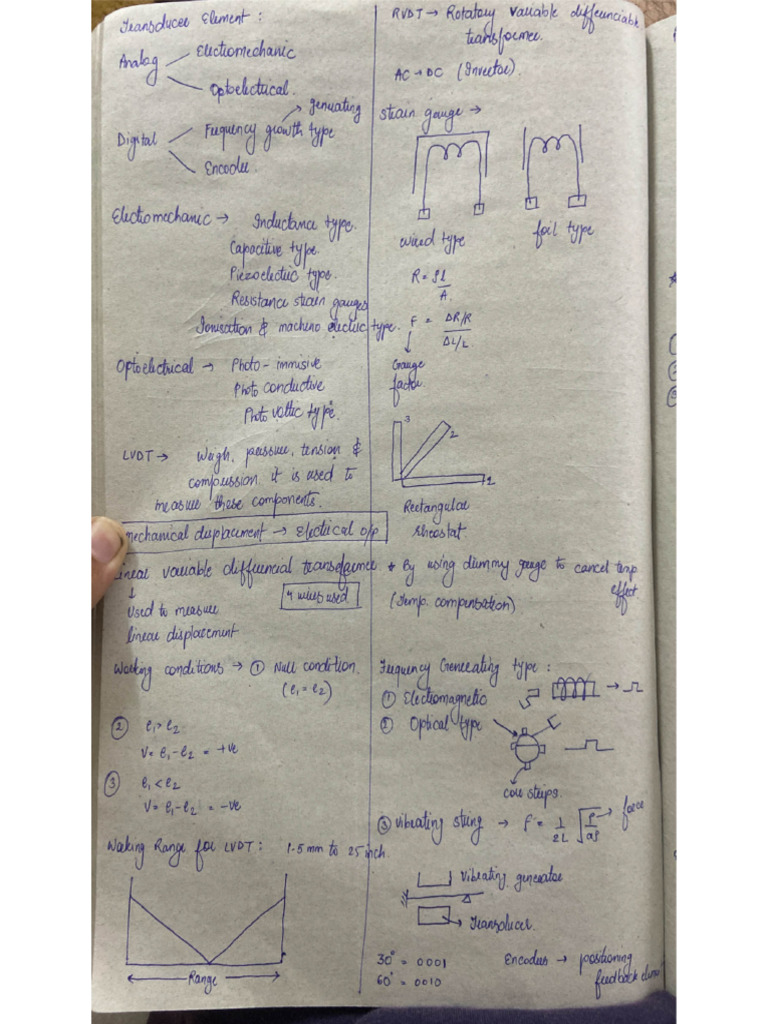 Transducer Element :
Analog
Electromechanic
Optoelectrical.
generating
Digital
Frequency growth type
Encoder.
Electromechanic → Inductance type.
Capacitive type.
Piezoelectric type.
Resistance strain gauges
Ionisation & macheno electric type.
Optoelectrical → Photo - immisive
Photo conductive
Photo voltic type.
LVDT → Weigh, pressure, tension &
compression. it is used to
measure these components.
mechanical displacement → Electrical o/p
Linear variable differencial transformer
↓
Used to measure
linear displacement
4 wires used
Working conditions → ① Null condition.
(e₁ = e₂)
② e₁ > e₂
V = e₁ - e₂ = +ve
③ e₁ < e₂
V = e₁ - e₂ = -ve
Working Range for LVDT : 1.5 mm to 25 inch.
Range
RVDT → Rotatory variable differenciable
transformer.
AC → DC (Invector).
Strain gauge →
wired type
foil type
R = ρl
A.
F = ΔR/R
ΔL/L
↓
Gauge
factor.
3
2
1
Rectangular
rheostat
* By using dummy gauge to cancel temp
effect
(Temp. compensation)
Frequency Generating type :
① Electromagnetic
② Optical type
core strips.
③ Vibrating string → f = 1/2L √P/aρ → force
Vibrating generator
Transducer
30° = 0001
60° = 0010
Encoders → positioning
feedback